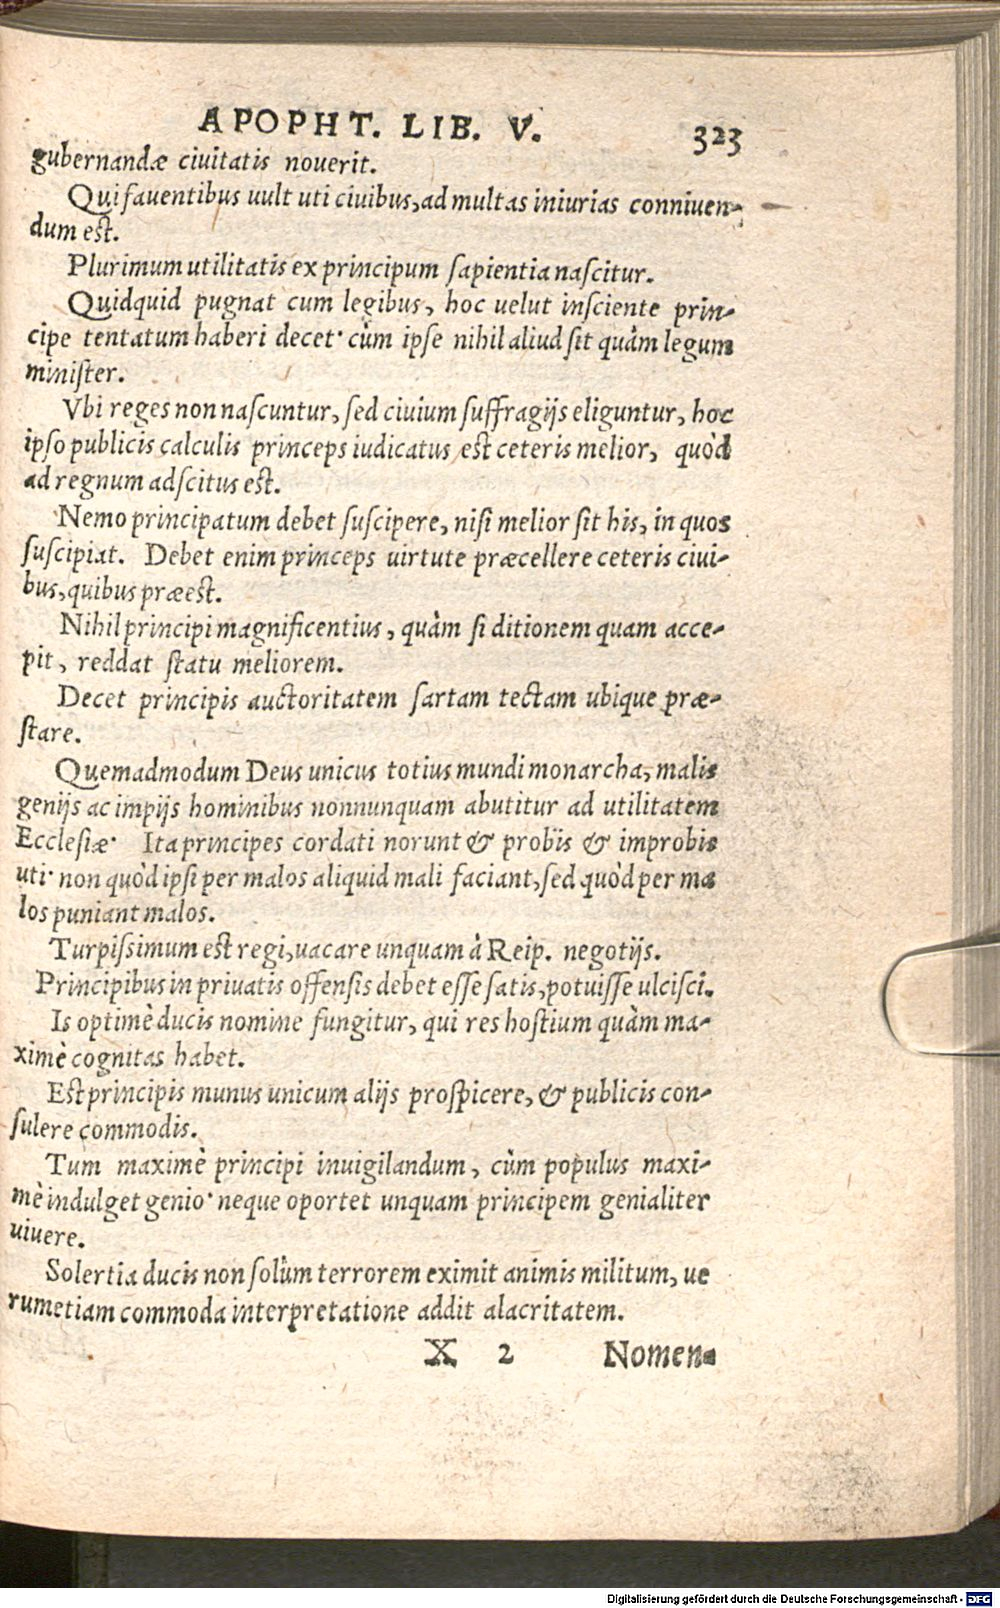 APOPHT. LIB. V. 323
gubernandæ ciuitatis nouerit.
Qui fauentibus uult uti ciuibus, ad multas iniurias conniuen-
dum est.
Plurimum utilitatis ex principum sapientia nascitur.
Quidquid pugnat cum legibus, hoc uelut insciente prin-
cipe tentatum haberi decet· cùm ipse nihil aliud sit quàm legum
minister.
Vbi reges non nascuntur, sed ciuium suffragijs eliguntur, hoc
ipso publicis calculis princeps iudicatus est ceteris melior, quòd
ad regnum adscitus est.
Nemo principatum debet suscipere, nisi melior sit his, in quos
suscipiat. Debet enim princeps uirtute præcellere ceteris ciui-
bus, quibus præest.
Nihil principi magnificentius, quàm si ditionem quam acce-
pit, reddat statu meliorem.
Decet principis auctoritatem sartam tectam ubique præ-
stare.
Quemadmodum Deus unicus totius mundi monarcha, malis
genijs ac impijs hominibus nonnunquam abutitur ad utilitatem
Ecclesiæ· Ita principes cordati norunt & probis & improbis
uti· non quòd ipsi per malos aliquid mali faciant, sed quòd per ma
los puniant malos.
Turpissimum est regi, uacare unquam à Reip. negotijs.
Principibus in priuatis offensis debet esse satis, potuisse ulcisci.
Is optimè ducis nomine fungitur, qui res hostium quàm ma-
ximè cognitas habet.
Est principis munus unicum alijs prospicere, & publicis con-
sulere commodis.
Tum maximè principi inuigilandum, cùm populus maxi-
mè indulget genio· neque oportet unquam principem genialiter
uiuere.
Solertia ducis non solùm terrorem eximit animis militum, ue
rumetiam commoda interpretatione addit alacritatem.
X 2 Nomen-
Digitalisierung gefördert durch die Deutsche Forschungsgemeinschaft - DFG